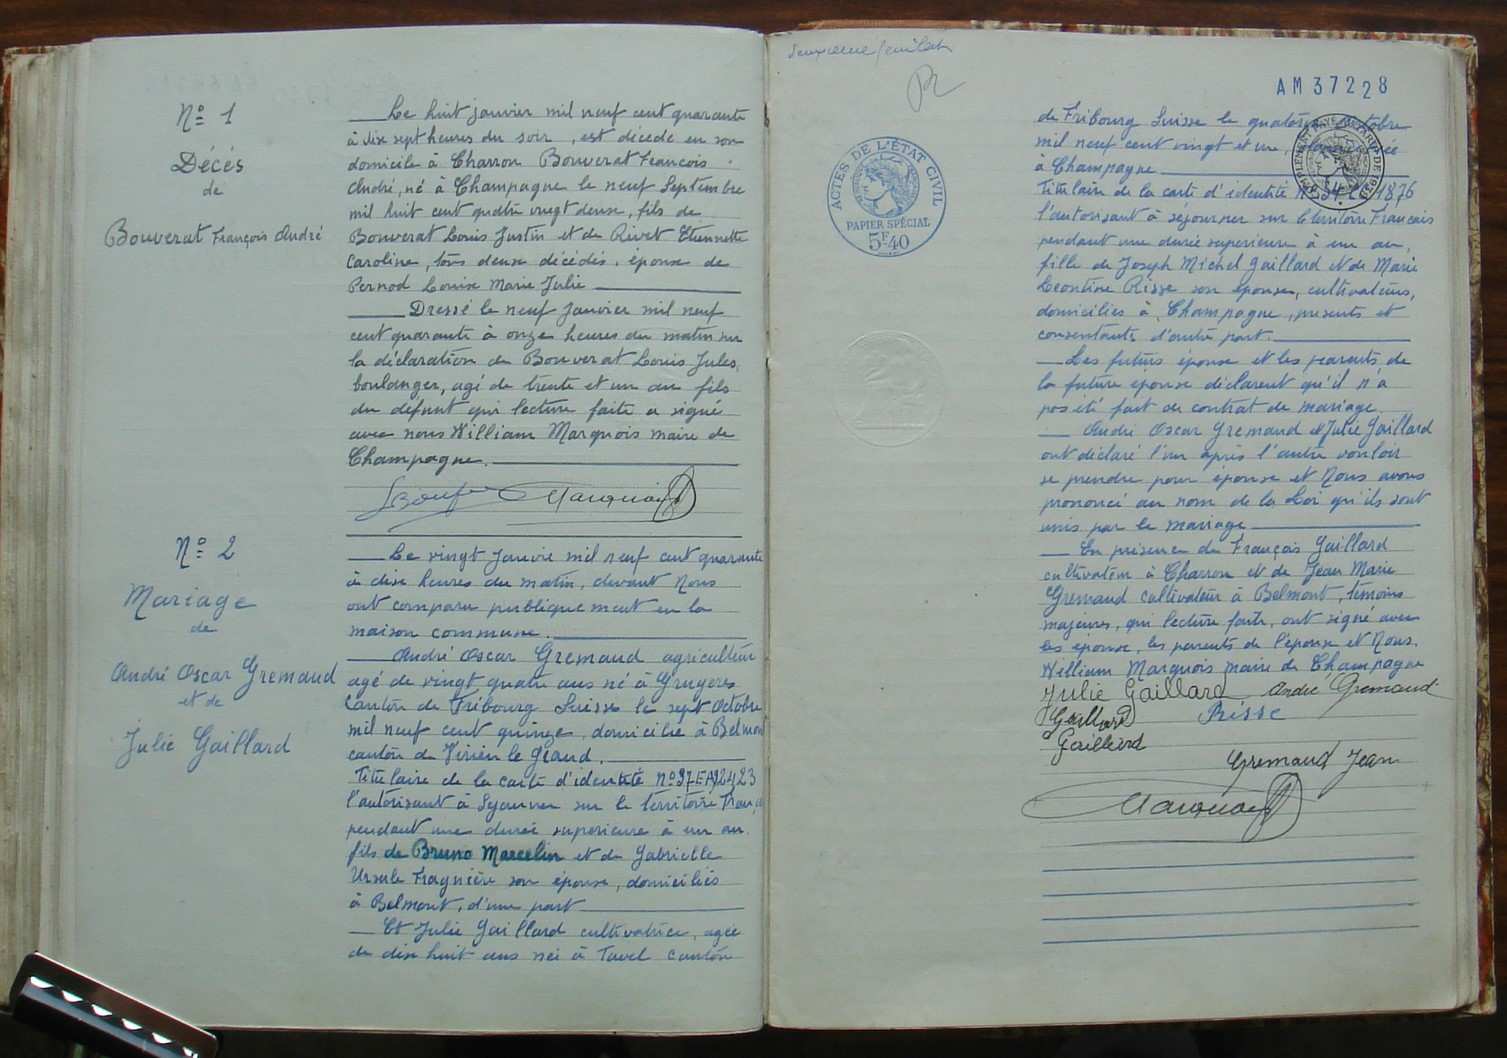 Nº 1
Décés
de
Bouverat François André
Le huit janvier mil neuf cent quarante
à dix sept heures du soir, est décédé en son
domicile à Charron Bouverat François
André, né à Champagne le neuf Septembre
mil huit cent quatre vingt deux, fils de
Bouverat Louis Justin et de Rivet Etiennette
Caroline, tous deux décédés. époux de
Pernod Louise Marie Julie
Dressé le neuf Janvier mil neuf
cent quarante à onze heures du matin sur
la déclaration de Bouverat Louis Jules,
boulanger, agé de trente et un an fils
du defunt qui lecture faite a signé
avec nous William Marquois maire de
Champagne.
Nº 2
Mariage
de
André Oscar Gremaud
et de
Julie Gaillard
Le vingt Janvié mil neuf cent quarante
à dix heures du matin, devant Nous
ont comparu publiquement en la
maison commune.
André Oscar Gremaud agriculteur
agé de vingt quatre ans né à Gruyeres
Canton de Fribourg Suisse le sept Octobre
mil neuf cent quinze, domicilié à Belmon
canton de Virieu le Grand.
Titulaire de la carte d'identité nº 37EA92423
l'autorisant à Sejourner sur le territoire Franç
pendant une durée superieure à un an.
fils de Bruno Marcelin et de Gabrielle
Ursule Fragnière son épouse, domiciliés
à Belmont, d'une part
Et Julie Gaillard cultivatrice, agée
de dix huit ans née à Tavel canton
deuxieme feuillet
AM37228
ACTES DE L'ÉTAT CIVIL
PAPIER SPÉCIAL
5F.40
de Fribourg Suisse le quatorze Octobre
mil neuf cent vingt et un,
à Champagne
Titulaire de la carte d'identité
l'autorisant à séjourner sur le territoire Francais
pendant une durée superieure à un an,
fille de Joseph Michel Gaillard et de Marie
Leontine Risse son épouse, cultivateurs,
domiciliés à Champagne, presents et
consentants d'autre part.
Les futurs époux et les parents de
la future épouse déclarent qu'il n'a
pas été fait de contrat de mariage.
André Oscar Gremaud et Julie Gaillard
ont déclaré l'un après l'autre vouloir
se prendre pour époux et Nous avons
prononcé au nom de la Loi qu'ils sont
unis par le mariage
En présence de François Gaillard
cultivateur à Charron et de Jean Marie
Gremaud cultivateur à Belmont, témoins
majeurs, qui lecture faite, ont signé avec
les époux, les parents de l'épouse et Nous.
William Marquois maire de Champagne
Julie Gaillard André Gremaud
Gaillard Risse
Gaillard
Gremaud Jean